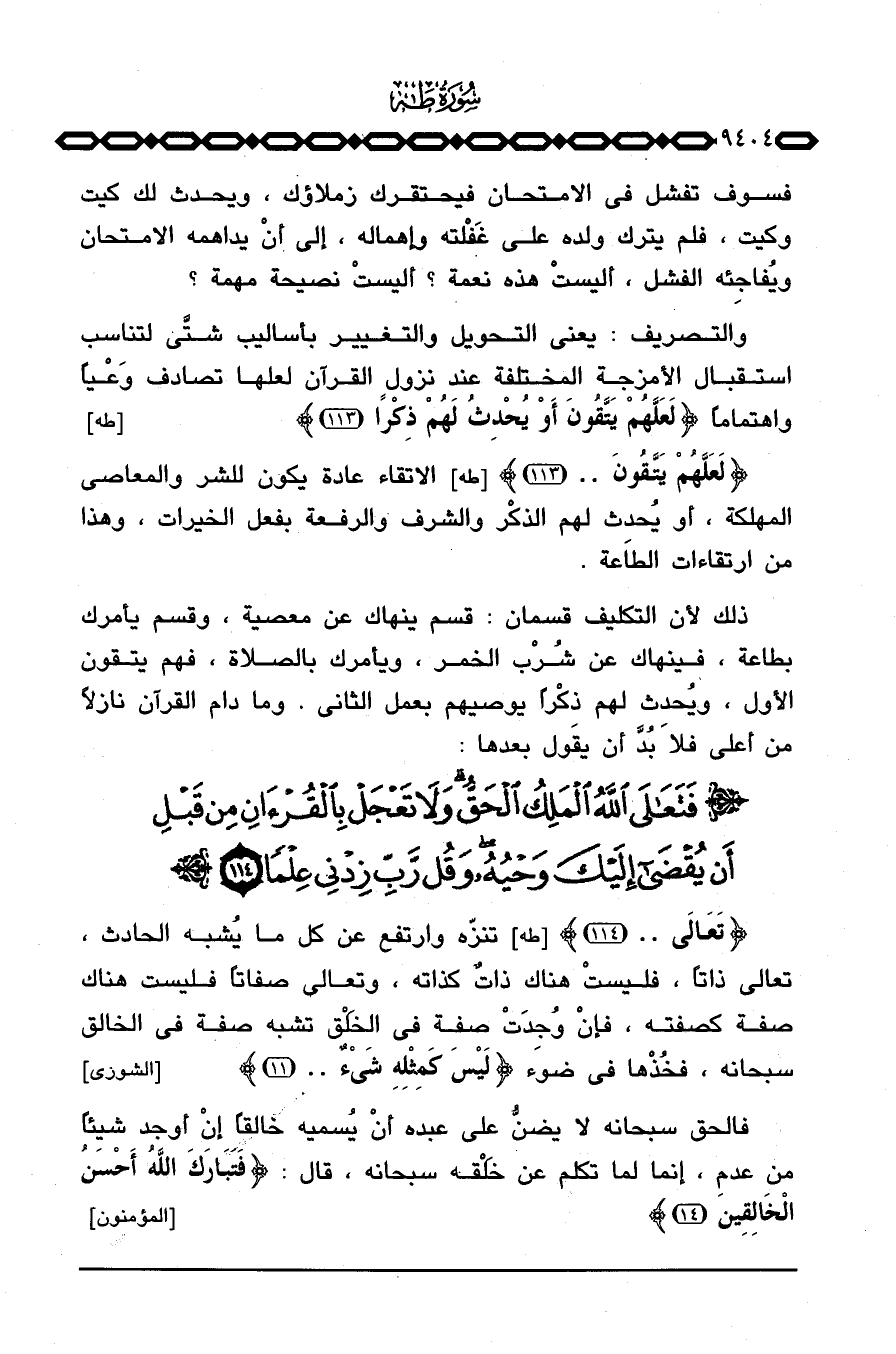 سُورَةُ طٰهٰ
٩٤٠٤
فسوف تفشل فى الامتحان فيحتقرك زملاؤك ، ويحدث لك كيت
وكيت ، فلم يترك ولده على غَفْلته وإهماله ، إلى أنْ يداهمه الامتحان
ويُفاجِئه الفشل ، أليستْ هذه نعمة ؟ أليستْ نصيحة مهمة ؟
والتصريف : يعنى التحويل والتغيير بأساليب شتَّى لتناسب
استقبال الأمزجة المختلفة عند نزول القرآن لعلها تصادف وَعْياً
واهتماماً ﴿ لَعَلَّهُمْ يَتَّقُونَ أَوْ يُحْدِثُ لَهُمْ ذِكْرًا (١١٣) ﴾ [طه]
﴿ لَعَلَّهُمْ يَتَّقُونَ .. (١١٣) ﴾ [طه] الاتقاء عادة يكون للشر والمعاصى
المهلكة ، أو يُحدث لهم الذكْر والشرف والرفعة بفعل الخيرات ، وهذا
من ارتقاءات الطَاعة .
ذلك لأن التكليف قسمان : قسم ينهاك عن معصية ، وقسم يأمرك
بطاعة ، فينهاك عن شُرْب الخمر ، ويأمرك بالصلاة ، فهم يتقون
الأول ، ويُحدث لهم ذكْراً يوصيهم بعمل الثانى . وما دام القرآن نازلاً
من أعلى فلا بُدَّ أن يقول بعدها :
فَتَعَٰلَى ٱللَّهُ ٱلْمَلِكُ ٱلْحَقُّ ۗ وَلَا تَعْجَلْ بِٱلْقُرْءَانِ مِن قَبْلِ
أَن يُقْضَىٰٓ إِلَيْكَ وَحْيُهُۥ ۖ وَقُل رَّبِّ زِدْنِى عِلْمًا ١١٤
﴿ تَعَالَى .. (١١٤) ﴾ [طه] تنزّه وارتفع عن كل ما يُشبه الحادث ،
تعالى ذاتاً ، فليستْ هناك ذاتٌ كذاته ، وتعالى صفاتاً فليست هناك
صفة كصفته ، فإنْ وُجِدَتْ صفة فى الخلَْق تشبه صفة فى الخالق
سبحانه ، فخُذْها فى ضوء ﴿ لَيْسَ كَمِثْلِهِ شَيْءٌ .. (١١) ﴾ [الشورى]
فالحق سبحانه لا يضنُّ على عبده أنْ يُسميه خالقاً إنْ أوجد شيئاً
من عدم ، إنما لما تكلم عن خلَْقه سبحانه ، قال : ﴿ فَتَبَارَكَ اللَّهُ أَحْسَنُ
الْخَالِقِينَ (١٤) ﴾ [المؤمنون]